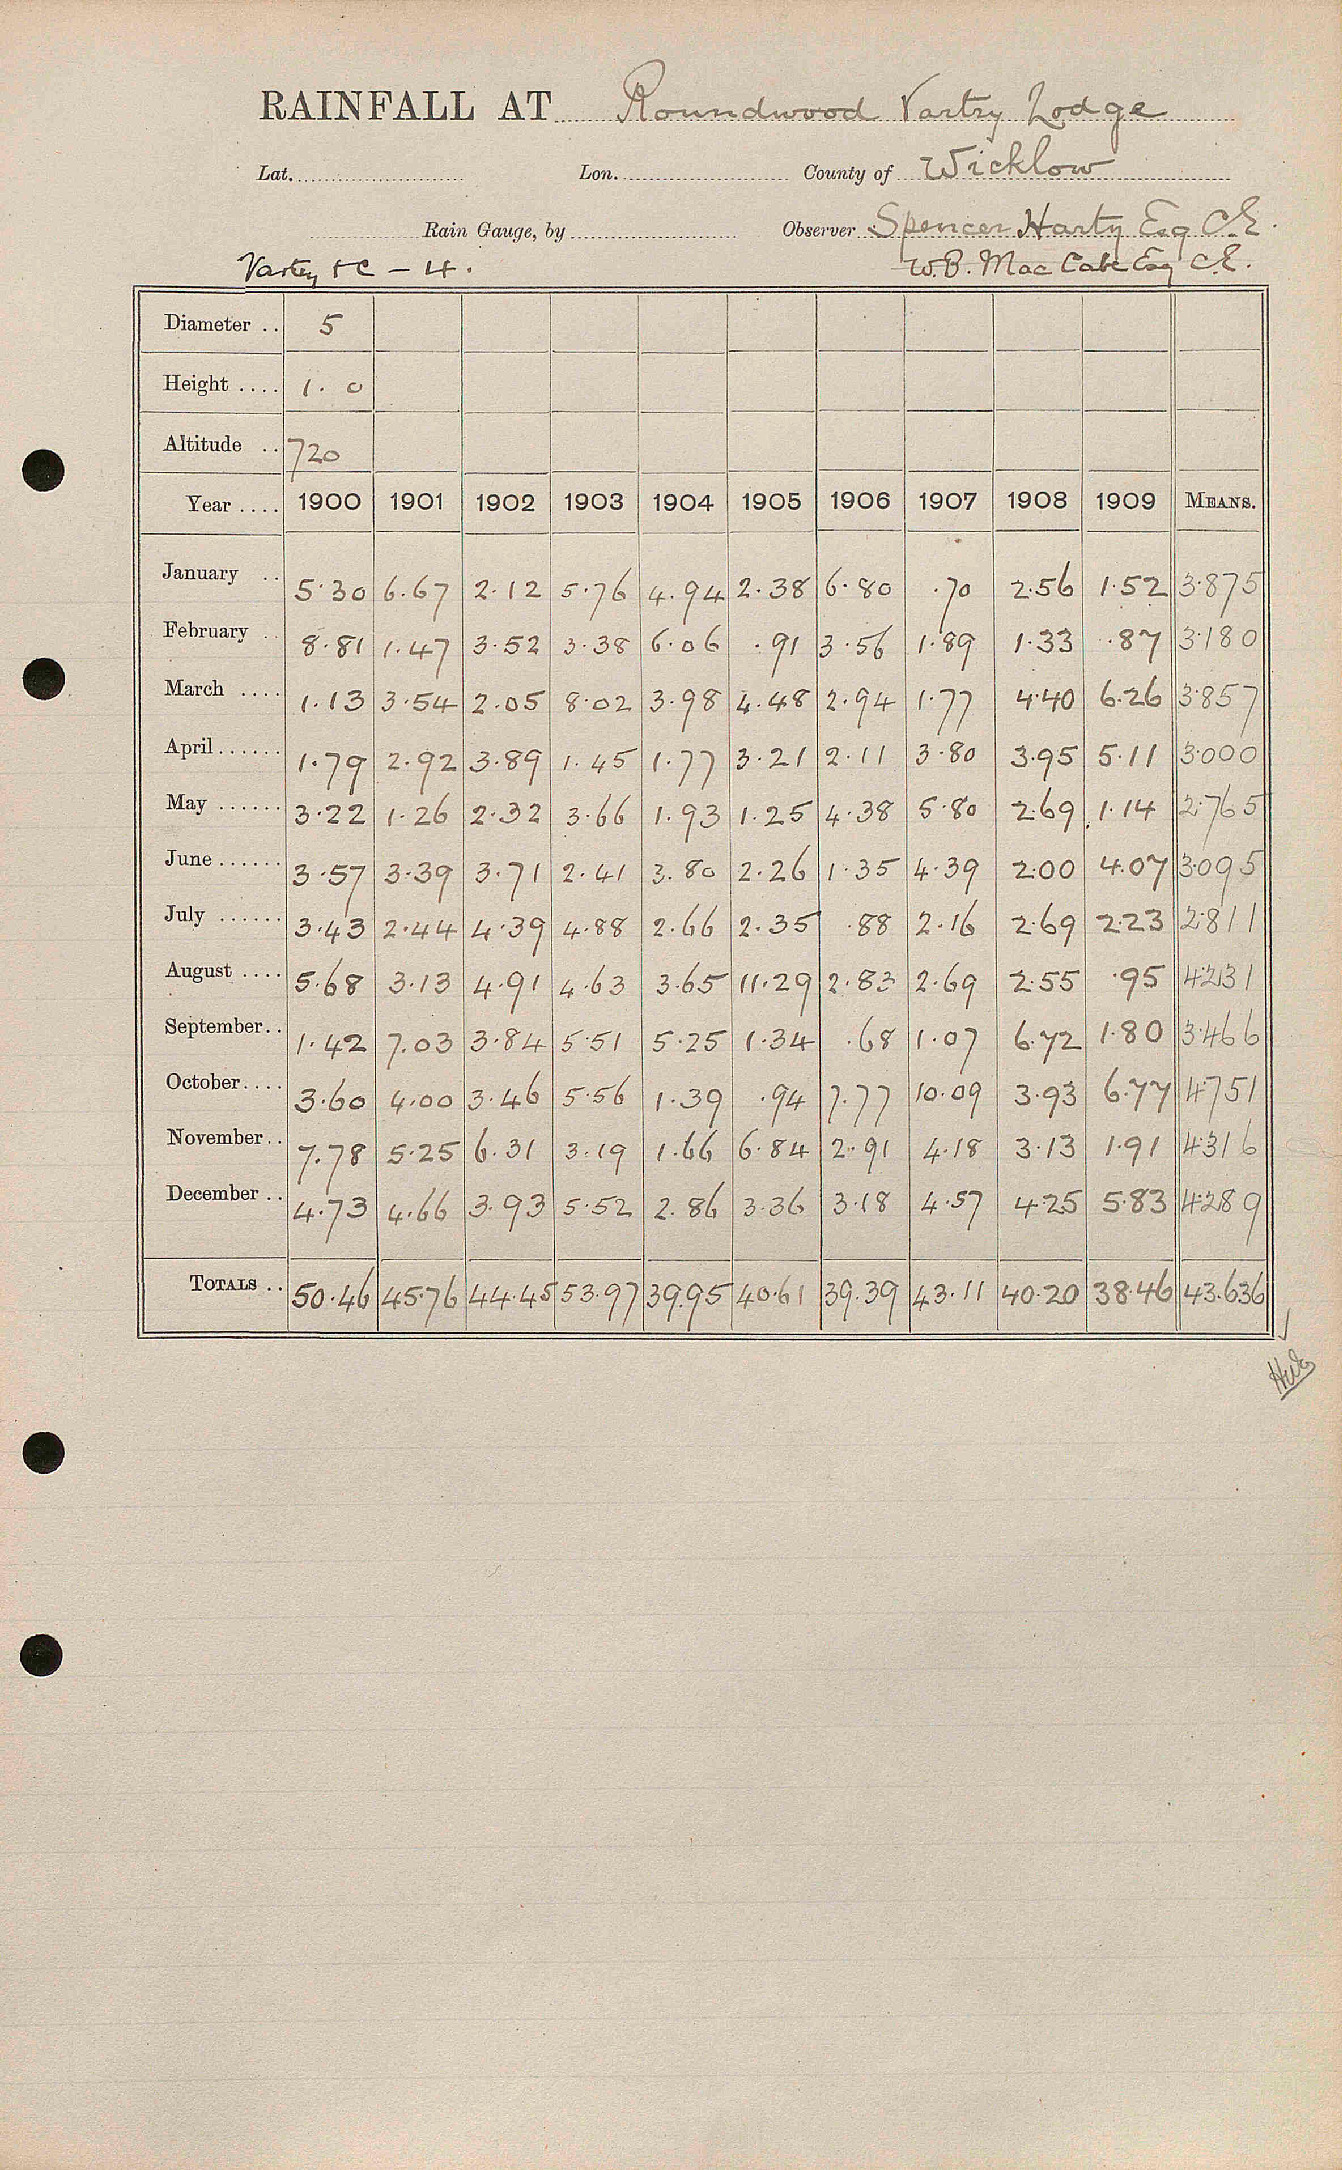 RAINFALL AT Roundwood Vartry Lodge
Lat. Lon. County of Wicklow
Rain Gauge, by Observer Spencer Harty Esq C.E.
Vartry &c - 4. W.B. Mac Cabe Esq C.E.
Diameter .. 5
Height .... 1. 0
Altitude .. 720
Year .... 1900 1901 1902 1903 1904 1905 1906 1907 1908 1909 MEANS.
January .. 5.30 6.67 2.12 5.76 4.94 2.38 6.80 .70 2.56 1.52 3.875
February .. 8.81 1.47 3.52 3.38 6.06 .91 3.56 1.89 1.33 .87 3.180
March .... 1.13 3.54 2.05 8.02 3.98 4.48 2.94 1.77 4.40 6.26 3.857
April ...... 1.79 2.92 3.89 1.45 1.77 3.21 2.11 3.80 3.95 5.11 3.000
May ...... 3.22 1.26 2.32 3.66 1.93 1.25 4.38 5.80 2.69 1.14 2.765
June ...... 3.57 3.39 3.71 2.41 3.80 2.26 1.35 4.39 2.00 4.07 3.095
July ...... 3.43 2.44 4.39 4.88 2.66 2.35 .88 2.16 2.69 2.23 2.811
August .... 5.68 3.13 4.91 4.63 3.65 11.29 2.83 2.69 2.55 .95 4.231
September.. 1.42 7.03 3.84 5.51 5.25 1.34 .68 1.07 6.72 1.80 3.466
October.... 3.60 4.00 3.46 5.56 1.39 .94 7.77 10.09 3.93 6.77 4.751
November.. 7.78 5.25 6.31 3.19 1.66 6.84 2.91 4.18 3.13 1.91 4.316
December .. 4.73 4.66 3.93 5.52 2.86 3.36 3.18 4.57 4.25 5.83 4.289
TOTALS .. 50.46 45.76 44.45 53.97 39.95 40.61 39.39 43.11 40.20 38.46 43.636